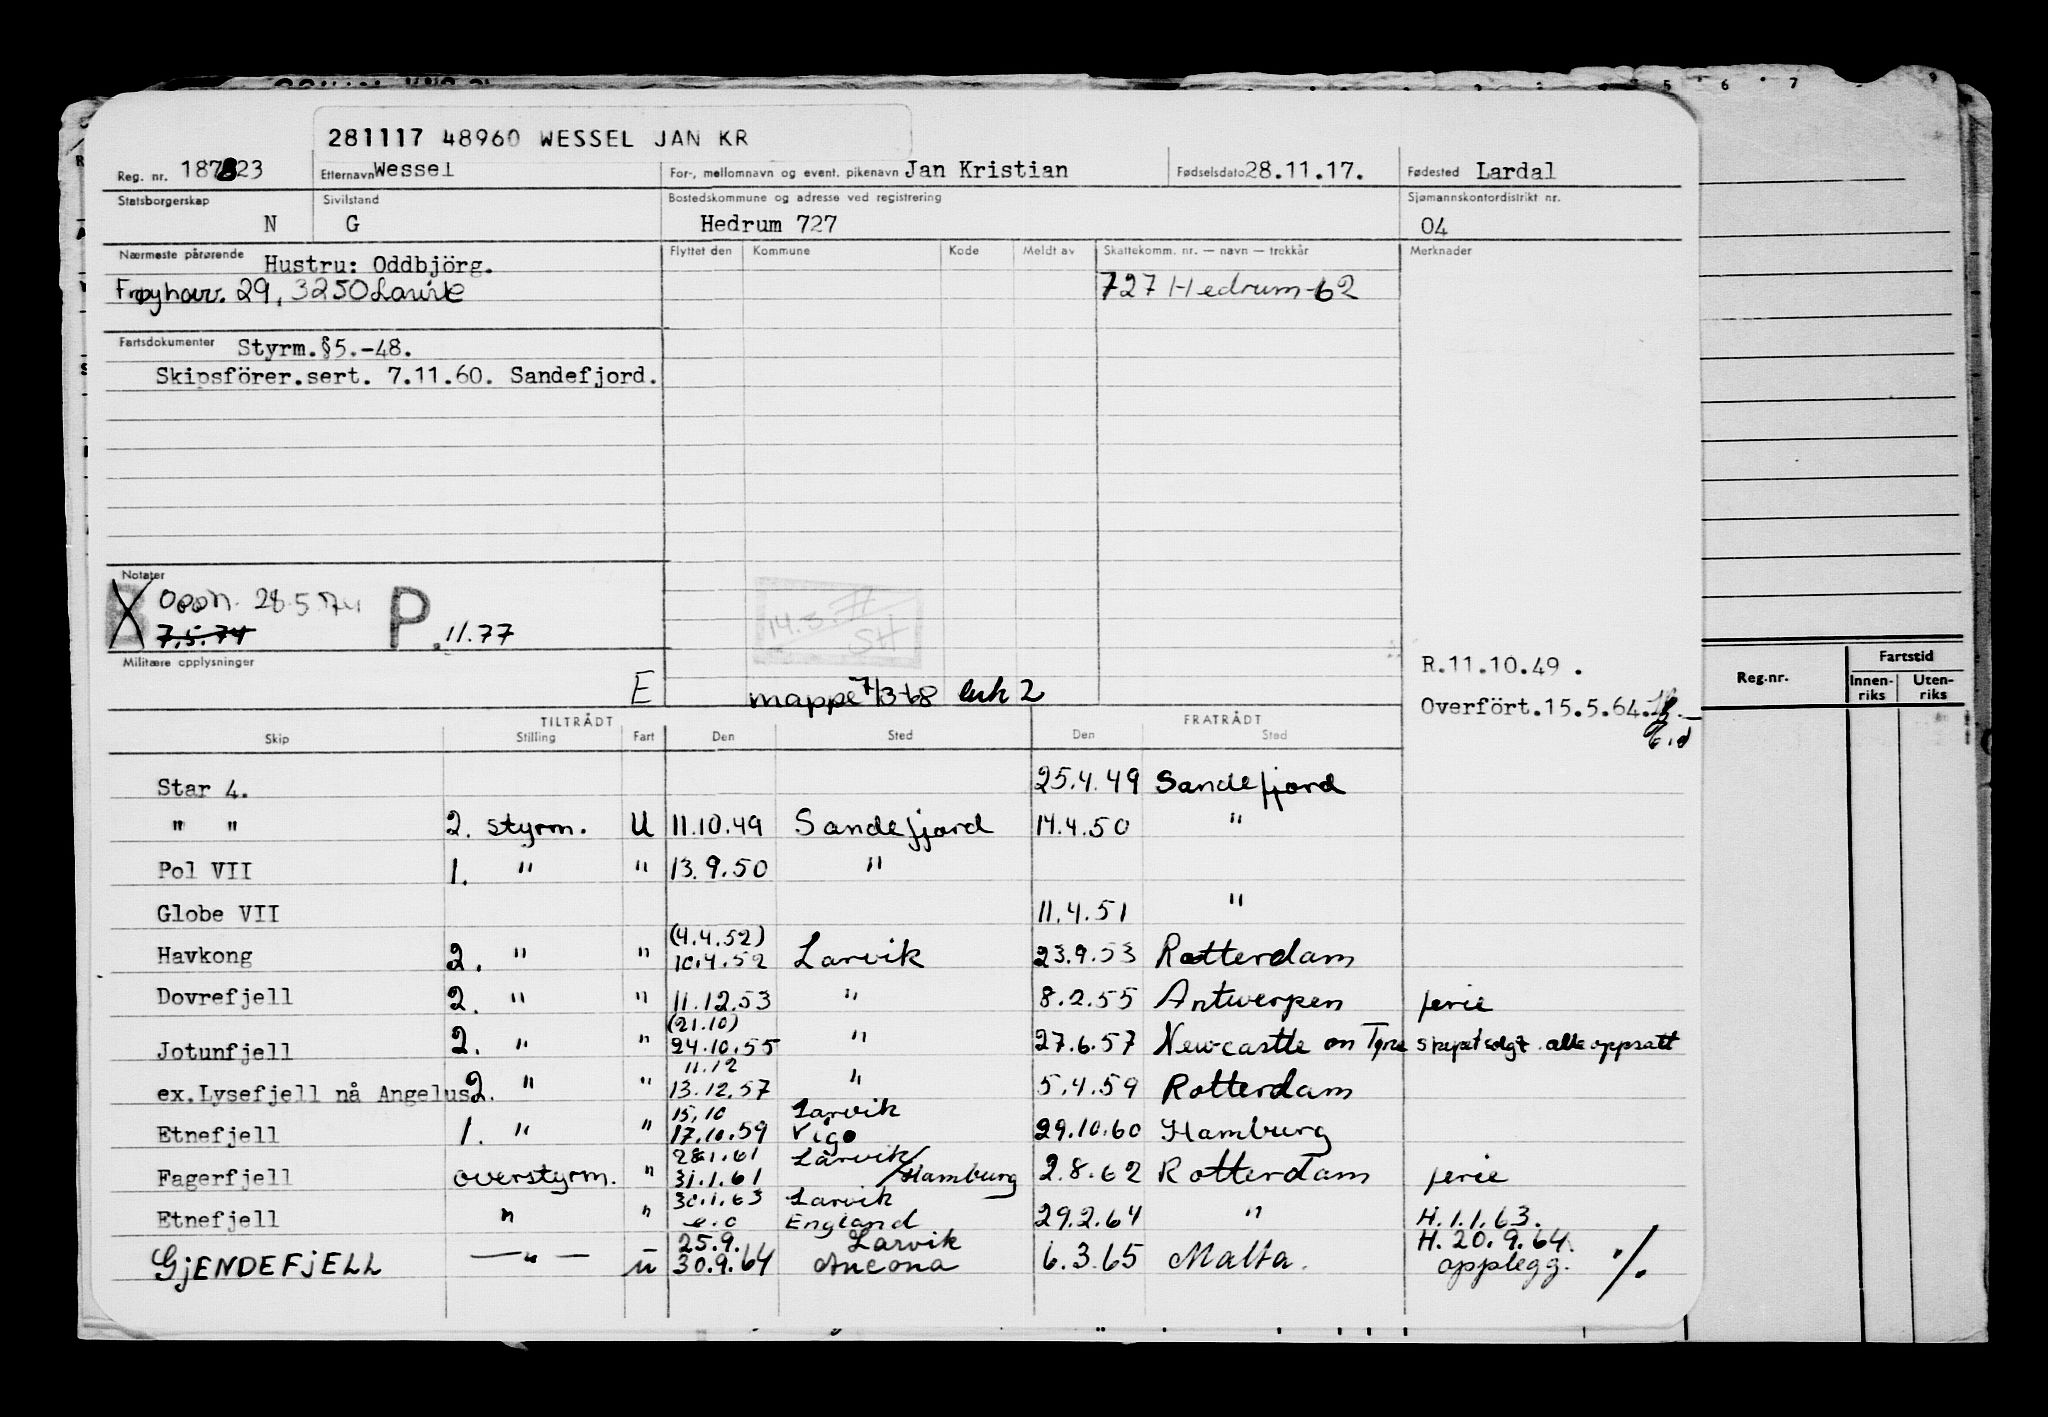 281117 48960 WESSEL JAN KR
Reg. nr. 187823 Etternavn Wessel For-, mellomnavn og event. pikenavn Jan Kristian Fødselsdato 28.11.17. Fødested Lardal
Statsborgerskap Sivilstand Bostedskommune og adresse ved registrering Sjømannskontordistrikt nr.
N G Hedrum 727 04
Nærmeste pårørende Hustru: Oddbjörg. Flyttet den Kommune Kode Meldt av Skattekomm. nr. — navn — trekkår Merknader
29, 3250 Larvik 727 Hedrum-62
Fartsdokumenter Styrm.§5.-48.
Skipsförer.sert. 7.11.60. Sandefjord.
Notater
Oppn. 28.5.74 P 14.3.77
7.5.74 11.77 SH
Militære opplysninger R.11.10.49 .
E mappe 7/3-68 luk 2 Overfört.15.5.64.
Reg.nr. Fartstid
Innen-riks Uten-riks
TILTRÅDT FRATRÅDT
Skip Stilling Fart Den Sted Den Sted
Star 4. 25.4.49 Sandefjord
" " 2. styrm. U 11.10.49 Sandefjord 14.4.50 "
Pol VII 1. " " 13.9.50 "
Globe VII 11.4.51 "
(4.4.52)
Havkong 2. " " 10.4.52 Larvik 23.9.53 Rotterdam
Dovrefjell 2. " " 11.12.53 " 8.2.55 Antwerpen ferie
(21.10)
Jotunfjell 2. " " 24.10.55 " 27.6.57 Newcastle on Tyne skipet solgt. alle oppsatt
11.12
ex.Lysefjell nå Angelus 2. " " 13.12.57 " 5.4.59 Rotterdam
15.10 Larvik
Etnefjell 1. " " 17.10.59 Vigo 29.10.60 Hamburg
28.1.61 Larvik/
Fagerfjell overstyrm. " 31.1.61 Hamburg 2.8.62 Rotterdam ferie
30.1.63 Larvik
Etnefjell " " e.o England 29.2.64 " H.1.1.63.
25.9. Larvik H. 20.9.64.
GJENDEFJELL — " — u 30.9.64 Ancona 6.3.65 Malta. opplegg. ./.